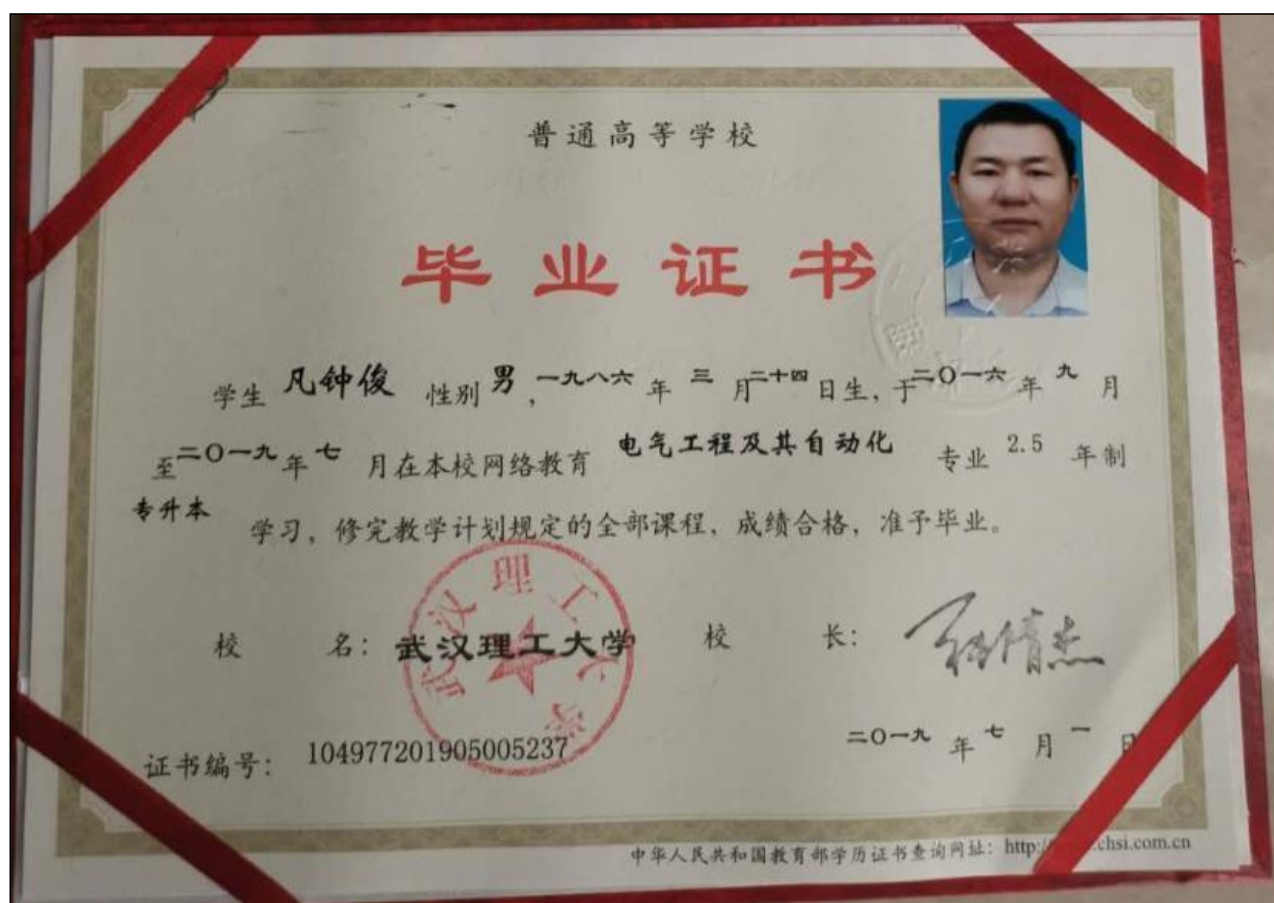 普通高等学校
毕业证书
学生 凡钟俊 性别 男，一九八六 年 三 月二十四日生，于二〇一六 年 九 月
至二〇一九年 七 月在本校网络教育 电气工程及其自动化 专业 2.5 年制
专升本 学习，修完教学计划规定的全部课程，成绩合格，准予毕业。
校 名：武汉理工大学 校 长：
武汉理工大学
证书编号： 104977201905005237 二〇一九 年 七 月 一 日
中华人民共和国教育部学历证书查询网址：http:/ chsi.com.cn